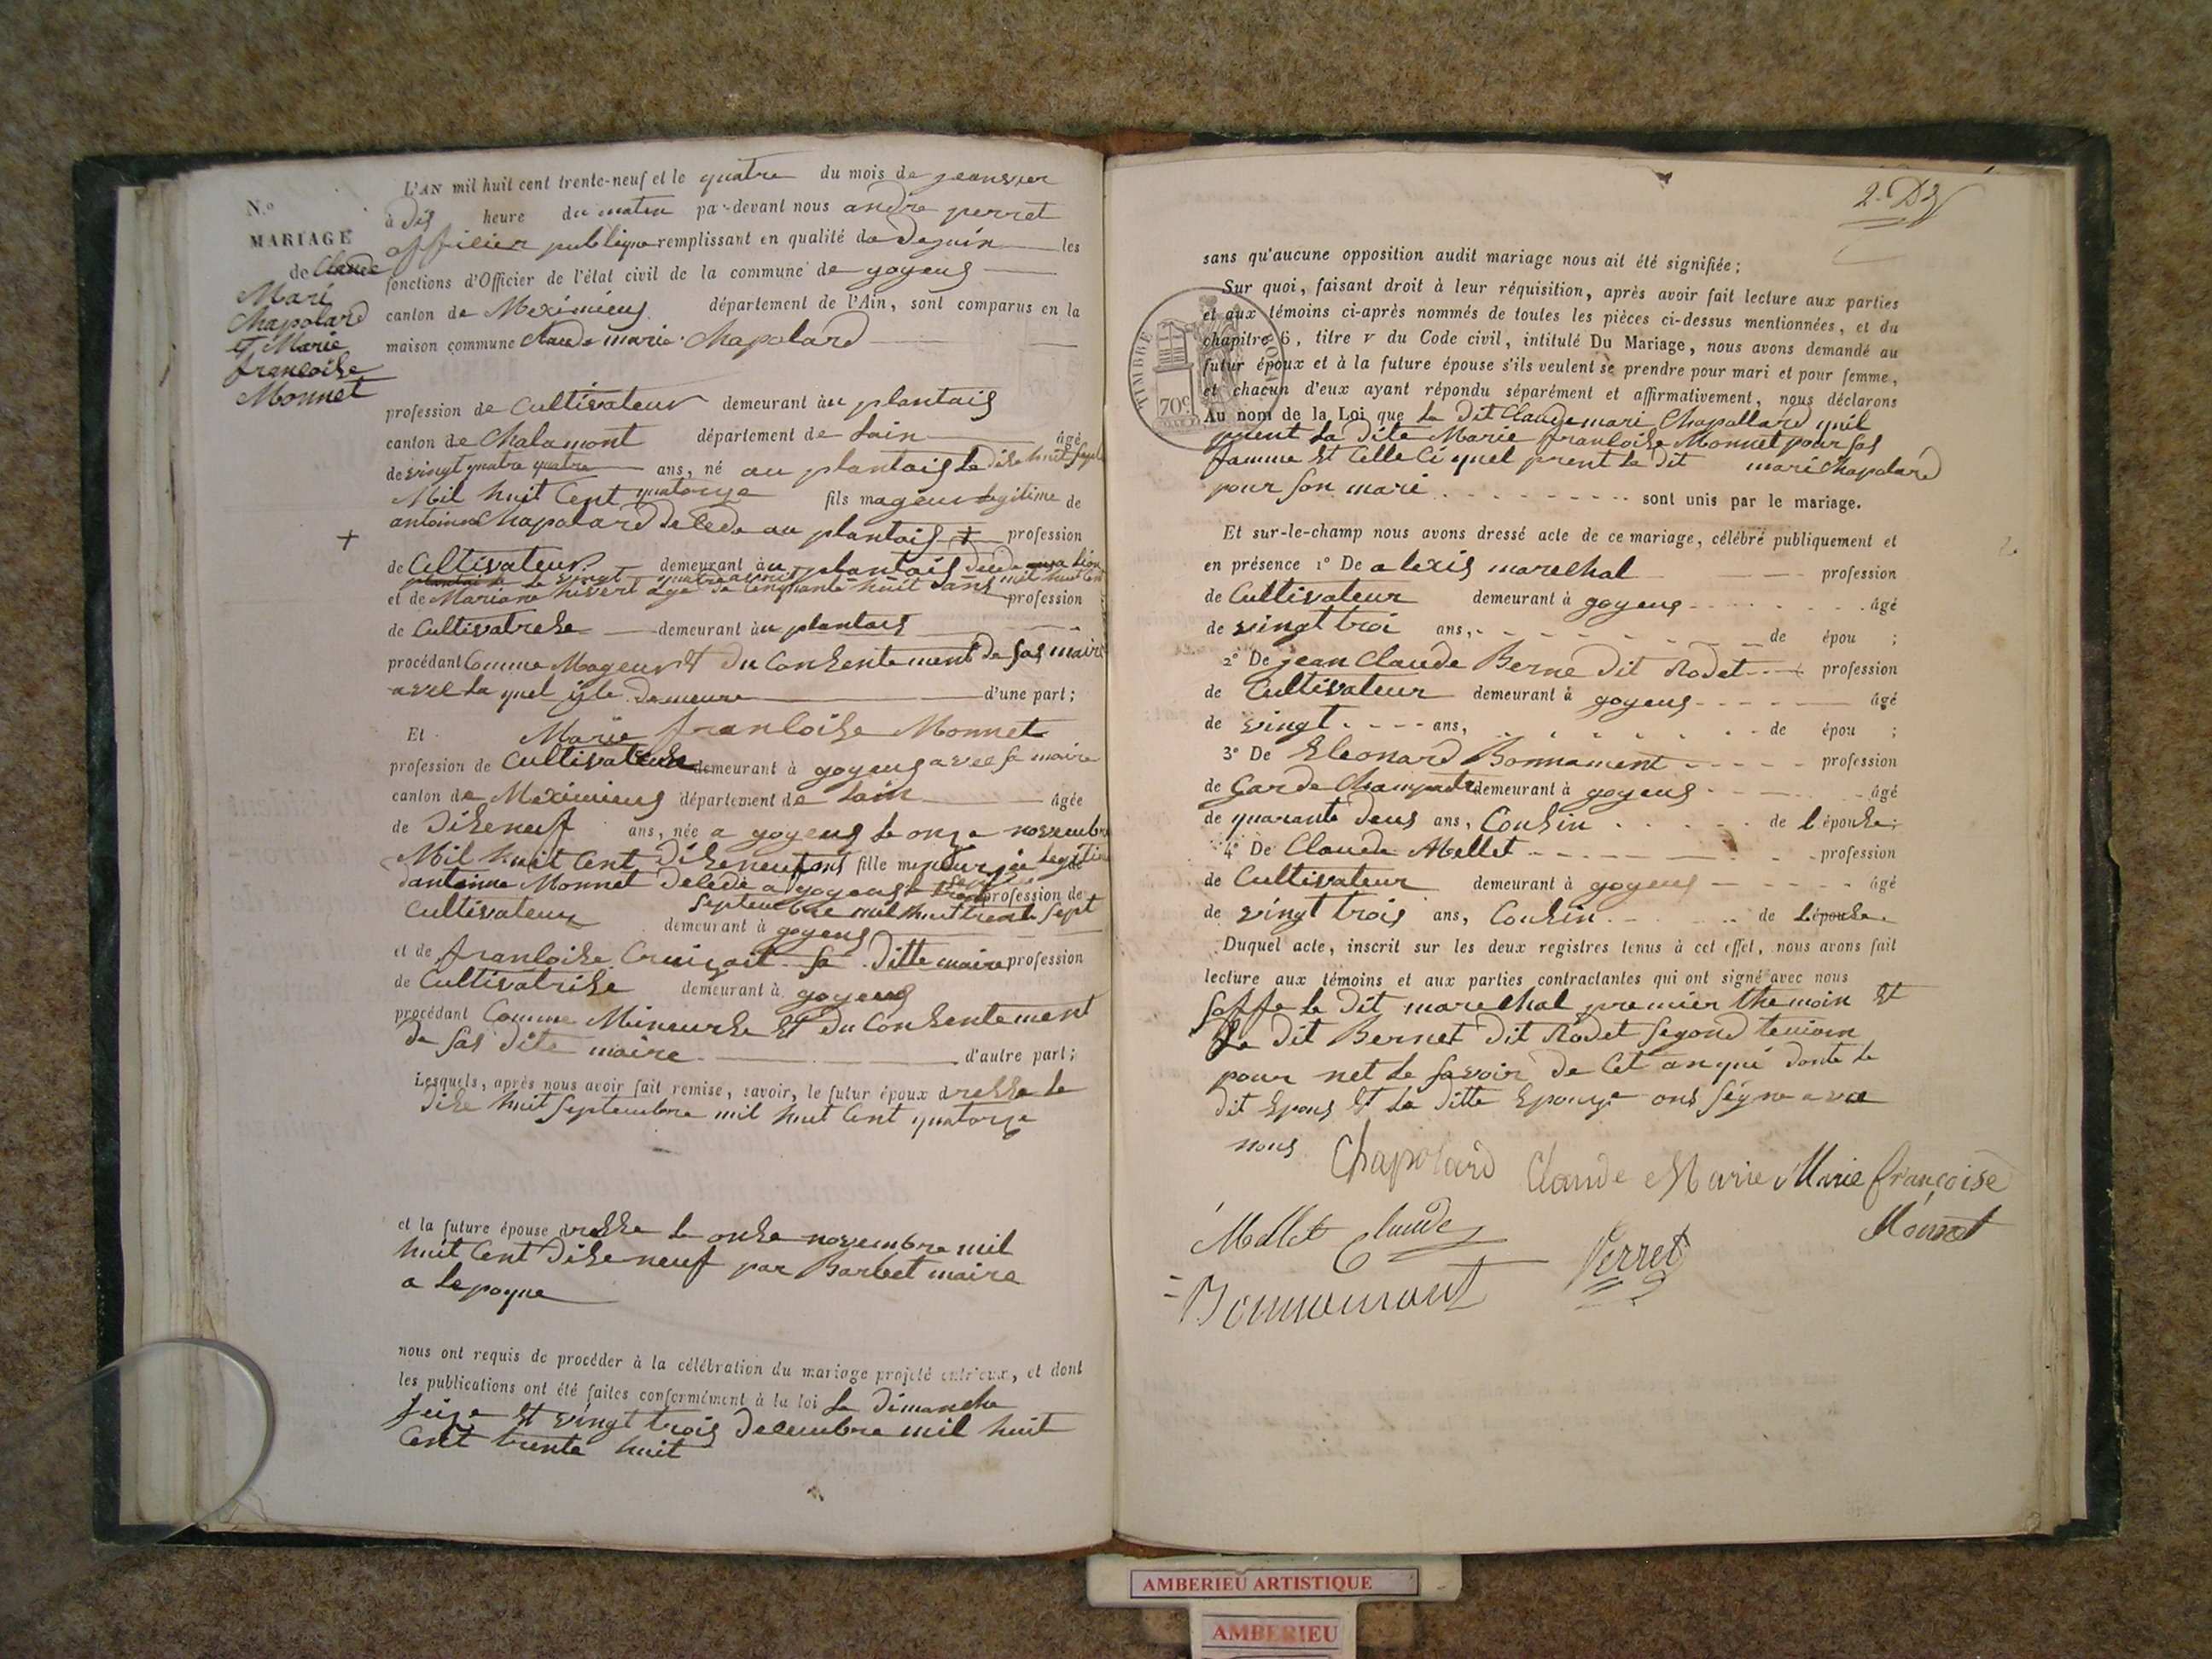 N.o
MARIAGE
de Claude
Mari
Chapolard
et Marie
francoise
Monnet
L'AN mil huit cent trente-neuf et le quatre du mois de jeanvier
à dis heure du matin par-devant nous andré perret
officier publique remplissant en qualité de dajoin les
fonctions d'Officier de l'état civil de la commune de goyeus
canton de Meximieus département de l'Ain, sont comparus en la
maison commune Claude marie Chapolard
profession de Cultivateur demeurant àu plantais
canton de Chalamont département de Lain âgé
de vingt quatre quatre ans, né au plantais le dise huit
Mil huit Cent quatorze fils mageur legitime de
antoine Chapolard décédé au plantais + profession
+
de Cultivateur demeurant àu plantais
le vingt quatre avril mil huit
et de Mariane hivert agé de cinquante huit dans profession
de Cultivatrese demeurant àu plantais
procédant Comme Mageur et du Consentement de sas maire
avec la quel isle demeure d'une part;
Et Marie francoise Monnet
profession de Cultivateuse demeurant à goyeus avec sa maire
canton de Meximieus département de Lain âgée
de Dise neuf ans, née a goyeus le onze novembre
Mil huit Cent Dise neuf ans fille mineur
dantoinne Monnet décédé a goyeus le profession de
Cultivateur septembre mil huit trente sept
demeurant à goyeus
et de francoise sa ditte maire profession
de Cultivatrise demeurant à goyeus
procédant Comme Mineurse et du Consentement
de sas dite maire d'autre part;
Lesquels, après nous avoir fait remise, savoir, le futur époux dresse le
dise huit septembre mil huit Cent quatorze
et la future épouse dresse le onse novembre mil
huit Cent Dise neuf par Barbet maire
a lepoque
nous ont requis de procéder à la célébration du mariage projeté entr'eux, et dont
les publications ont été faites conformément à la loi le dimanche
seize et vingt trois decembre mil huit
Cent trente huit
2.
sans qu'aucune opposition audit mariage nous ait été signifiée;
Sur quoi, faisant droit à leur réquisition, après avoir fait lecture aux parties
et aux témoins ci-après nommés de toutes les pièces ci-dessus mentionnées, et du
chapitre 6, titre v du Code civil, intitulé Du Mariage, nous avons demandé au
futur époux et à la future épouse s'ils veulent se prendre pour mari et pour femme,
et chacun d'eux ayant répondu séparément et affirmativement, nous déclarons
TIMBRE
70c.
Au nom de la Loi que le dit Claude mari Chapollard quil
prent la dite Marie francoise Monnet pour sas
famme et Celle Ci quel prent le dit mari Chapolard
pour son mari sont unis par le mariage.
Et sur-le-champ nous avons dressé acte de ce mariage, célébré publiquement et
en présence 1o De alexis marechal profession
de Cultivateur demeurant à goyeus âgé
de vingt troi ans, de épou ;
2o De jean Claude Berne dit Rodet profession
de Cultivateur demeurant à goyeus âgé
de vingt ans, de épou ;
3o De Eleonard Bonnament profession
de Garde Champetre demeurant à goyeus âgé
de quarante deus ans, Cousin de l'épouse;
4o De Claude Mellet profession
de Cultivateur demeurant à goyeus âgé
de vingt trois ans, Cousin de l'épouse.
Duquel acte, inscrit sur les deux registres tenus à cet effet, nous avons fait
lecture aux témoins et aux parties contractantes qui ont signé avec nous
soffe le dit marechal premier themoin et
Le dit Bernet dit Rodet segond temoin
pour net le savoir de Cet anqué donte le
dit Epous et la ditte Epouze ons signe avec
nous Chapolard Claude Marie Marie françoise
Monnet
Mellet Claude
Perret
Bonnamant
AMBERIEU ARTISTIQUE
AMBERIEU